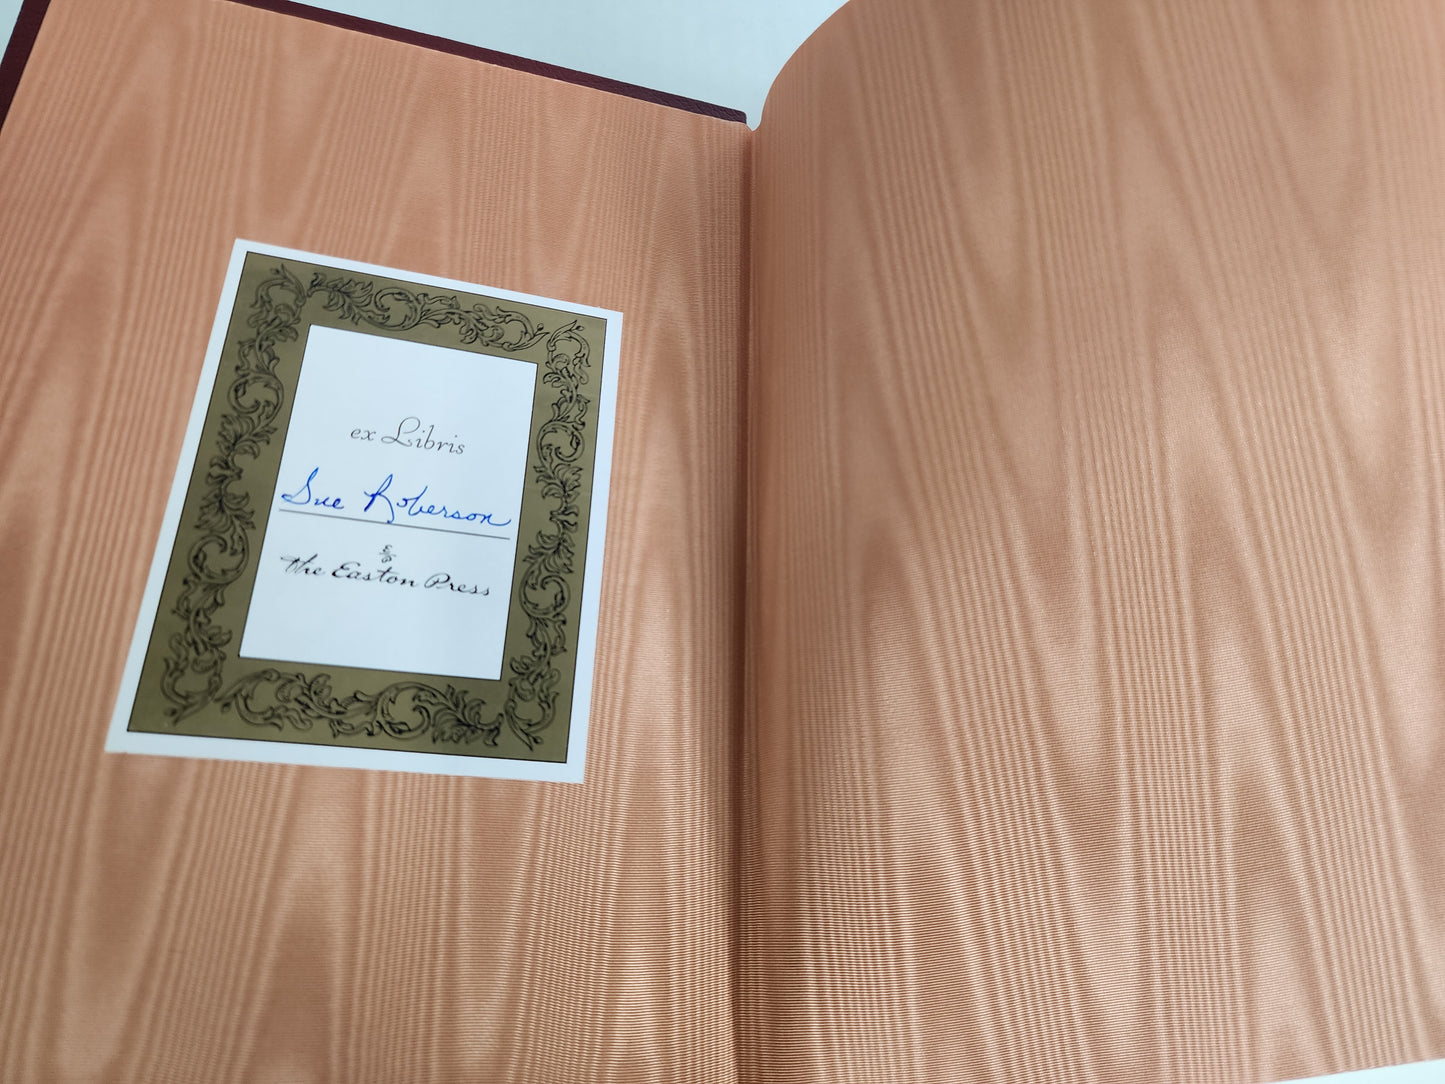 ex Libris
Sue Roberson
the Easton Press